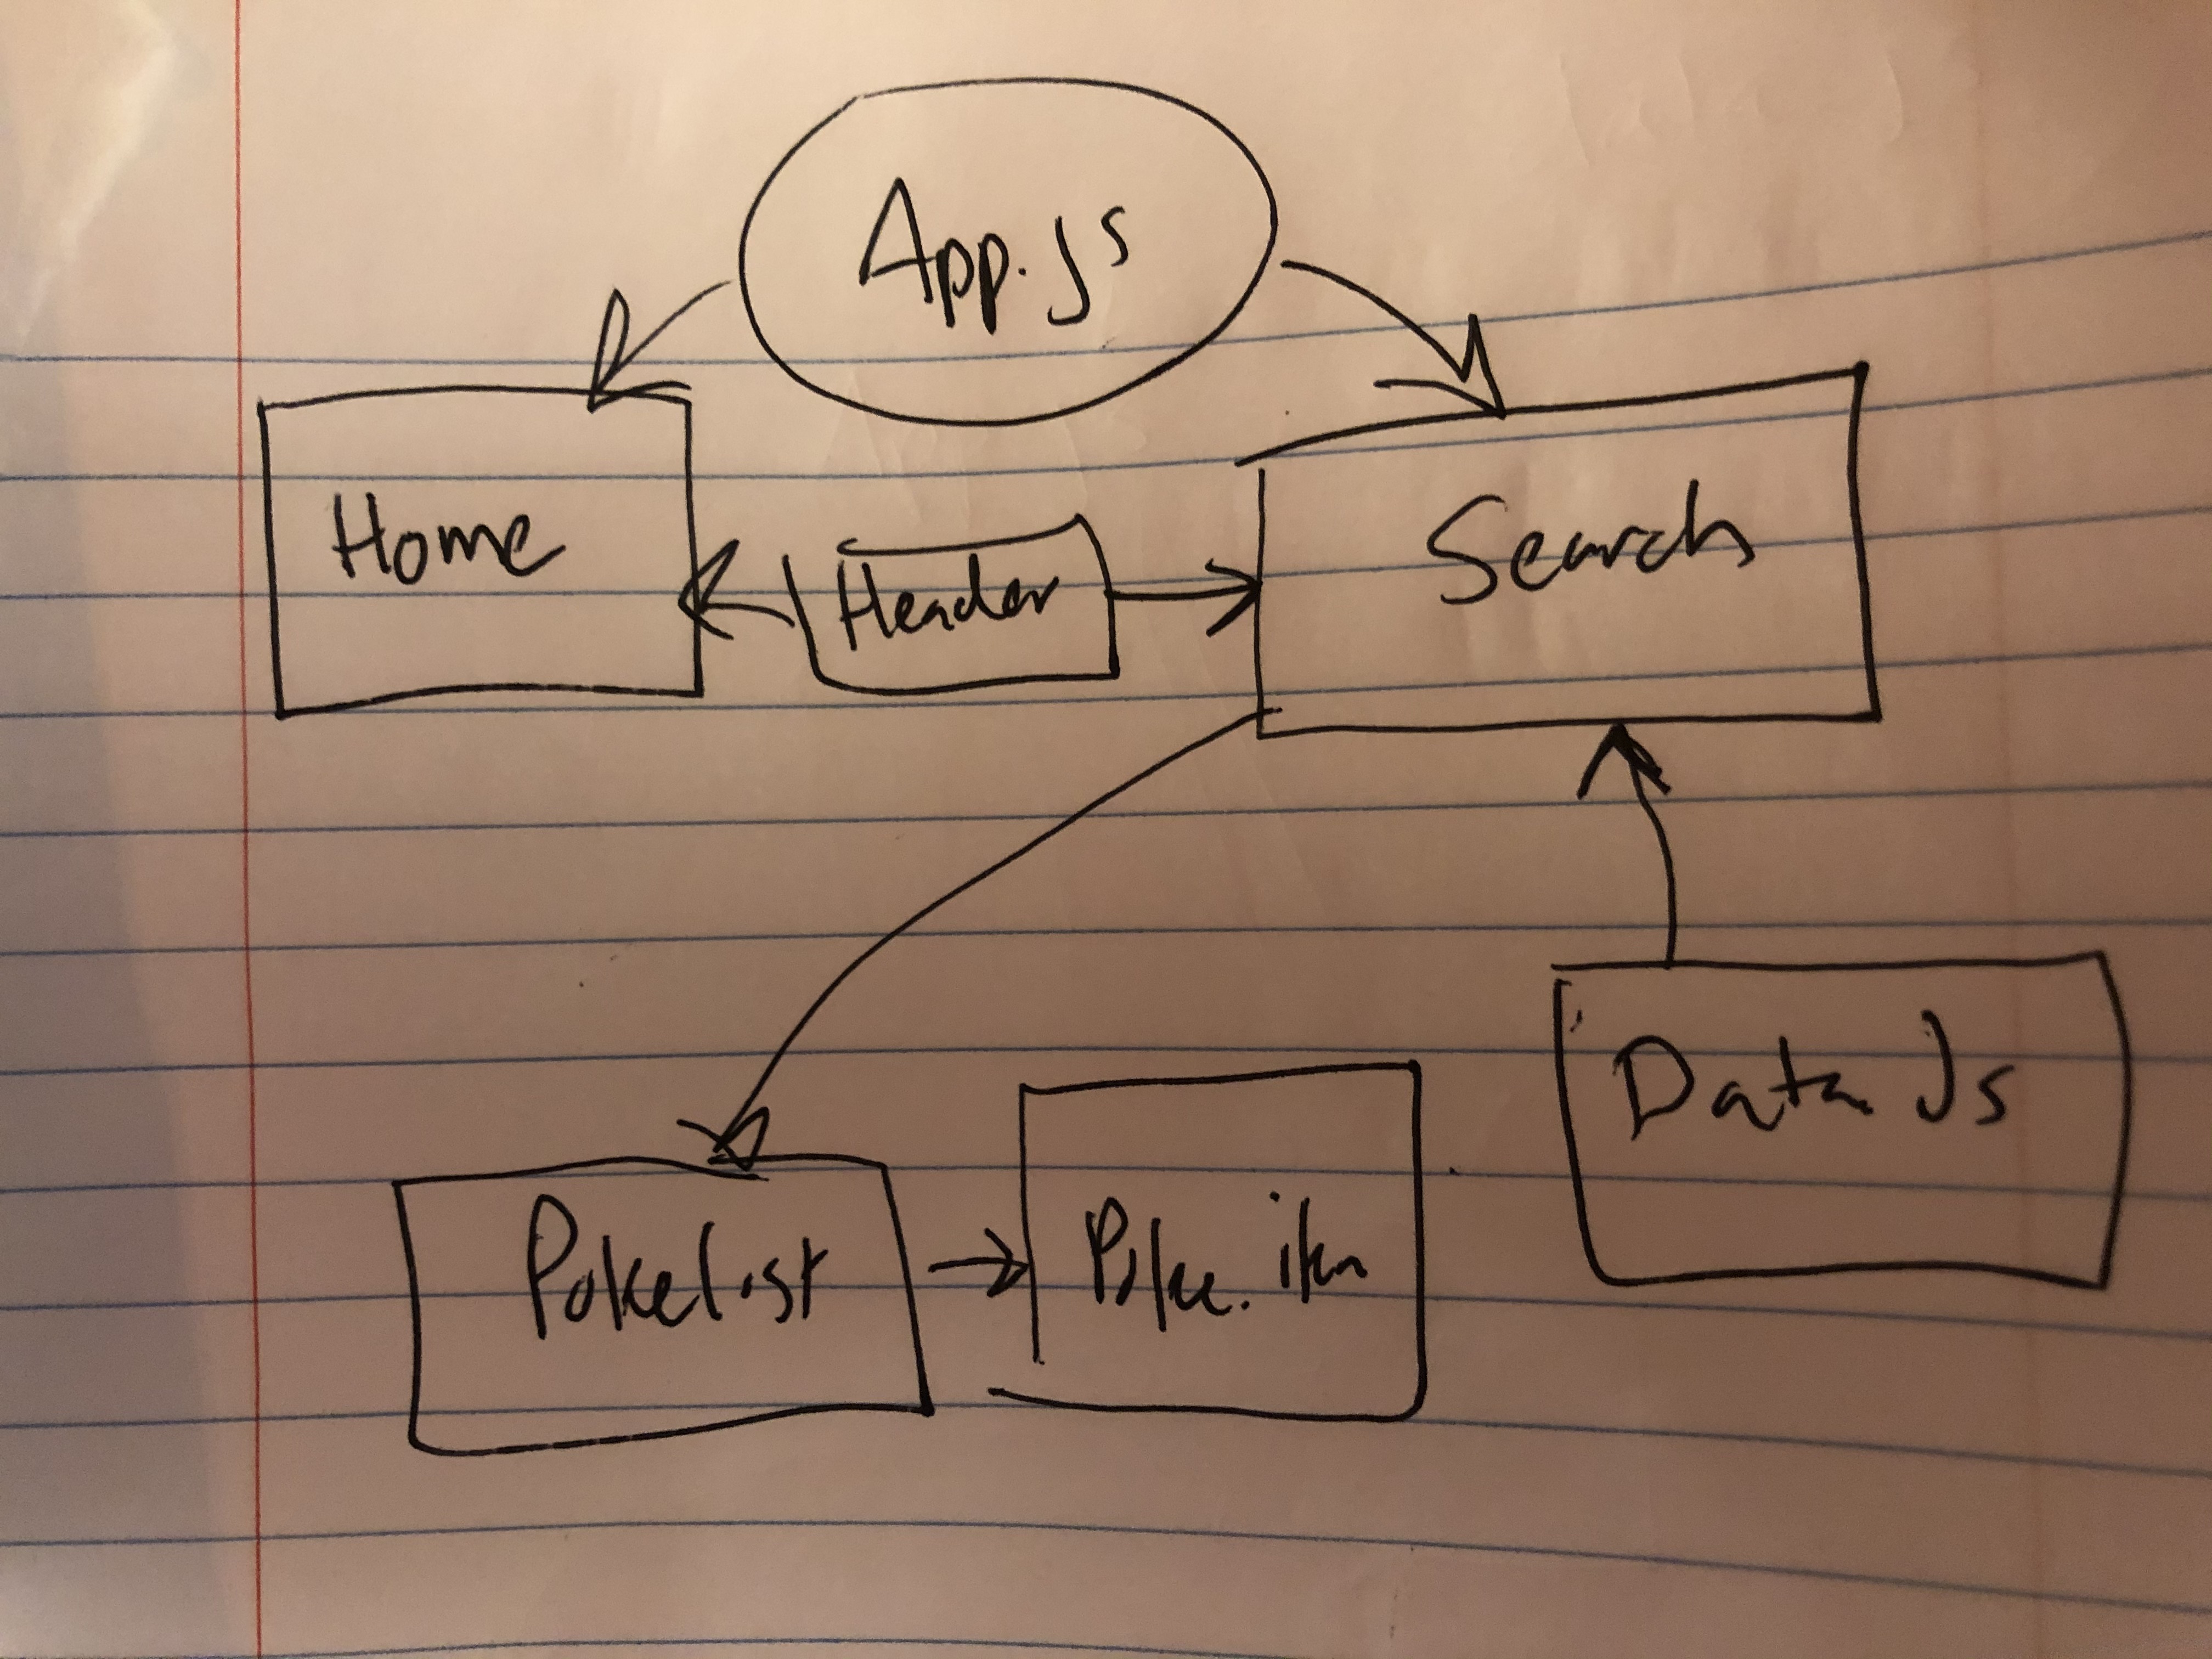 App.js
Home
Header
Search
Data Js
Pokelist
Poke.item